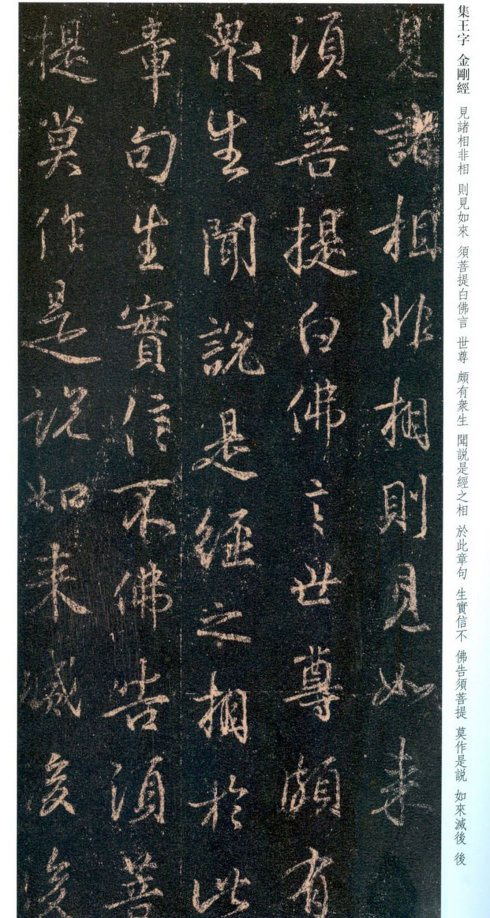 集王字 金剛經 見諸相非相 則見如來 須菩提白佛言 世尊 頗有衆生 聞說是經之相 於此章句 生實信不 佛告須菩提 莫作是說 如來滅後 後
見諸相非相則見如来
須菩提白佛言世尊頗有
衆生聞說是經之相於此
章句生實信不佛告須菩
提莫作是说如来滅後後